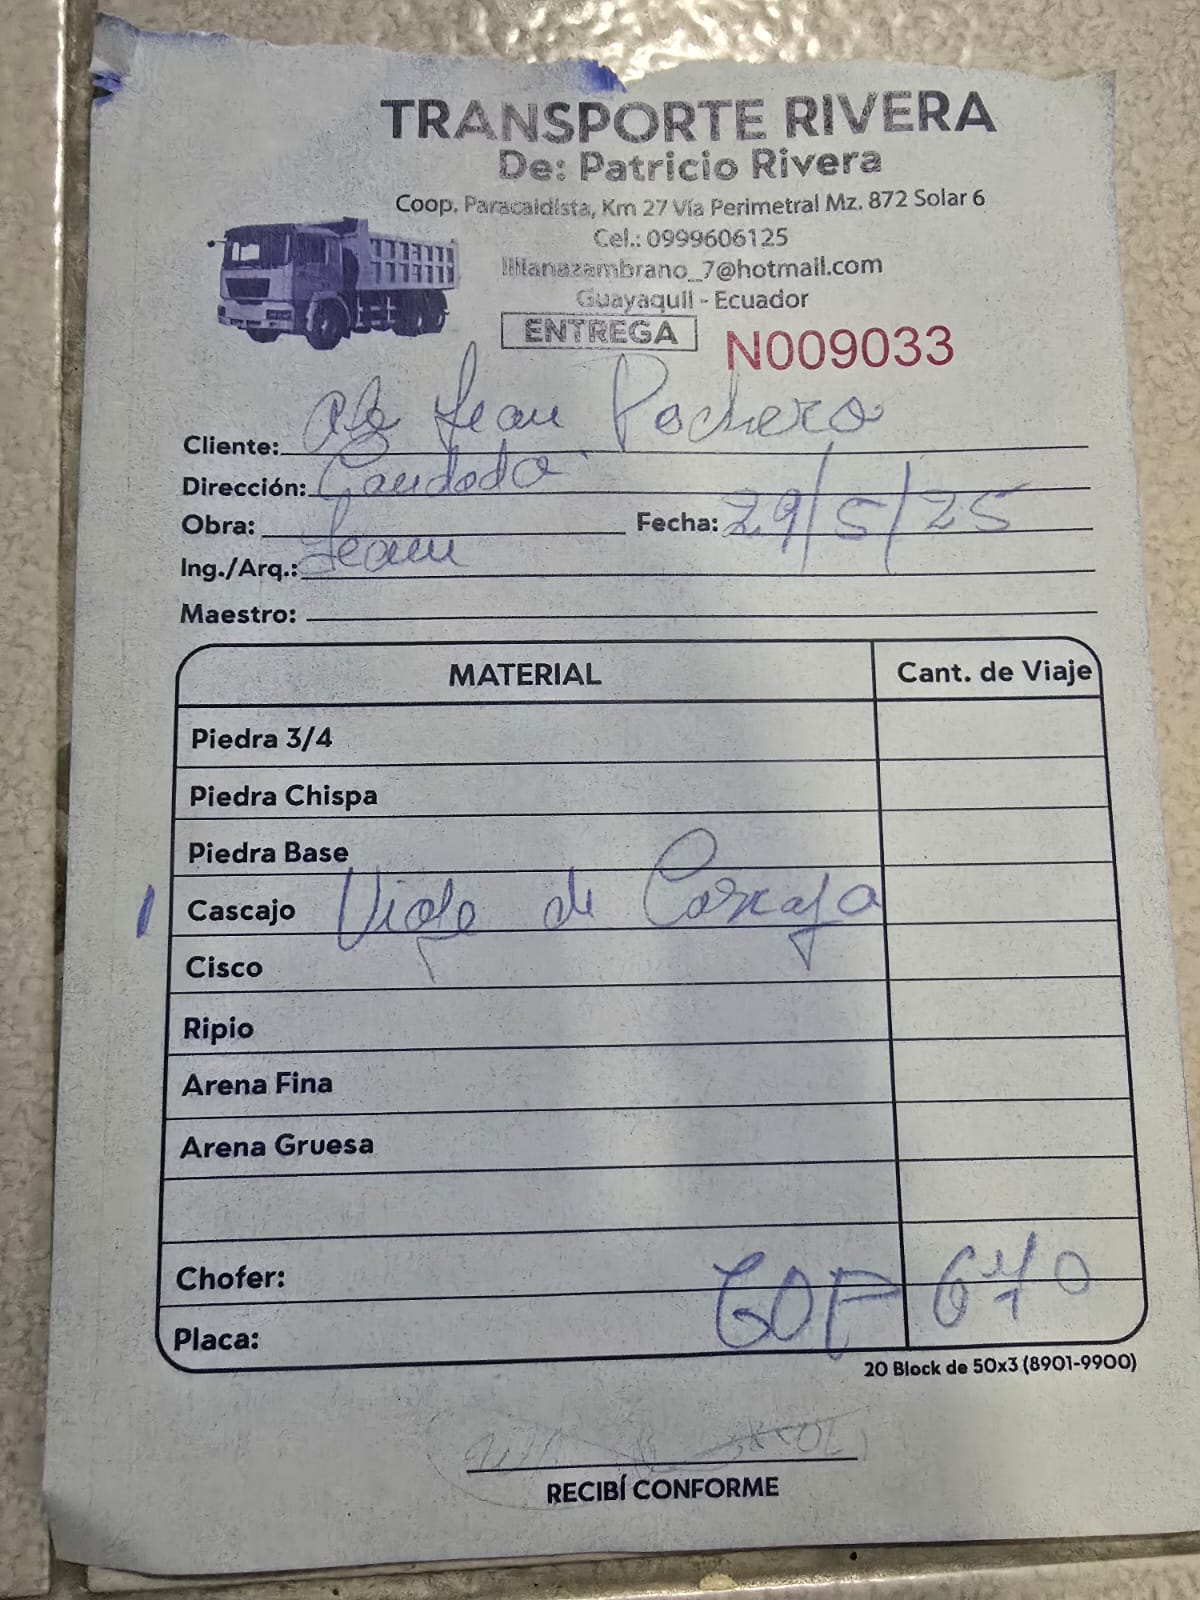 TRANSPORTE RIVERA
De: Patricio Rivera
Coop. Paracaidista, Km 27 Vía Perimetral Mz. 872 Solar 6
Cel.: 0999606125
lilianazambrano_7@hotmail.com
Guayaquil - Ecuador
ENTREGA N009033
Cliente: Jean Pochero
Dirección:
Obra: Fecha: 29/5/25
Ing./Arq.: Jean
Maestro:
MATERIAL Cant. de Viaje
Piedra 3/4
Piedra Chispa
Piedra Base
1 Cascajo Viaje de Cascajo
Cisco
Ripio
Arena Fina
Arena Gruesa
Chofer:
Placa:
20 Block de 50x3 (8901-9900)
RECIBÍ CONFORME